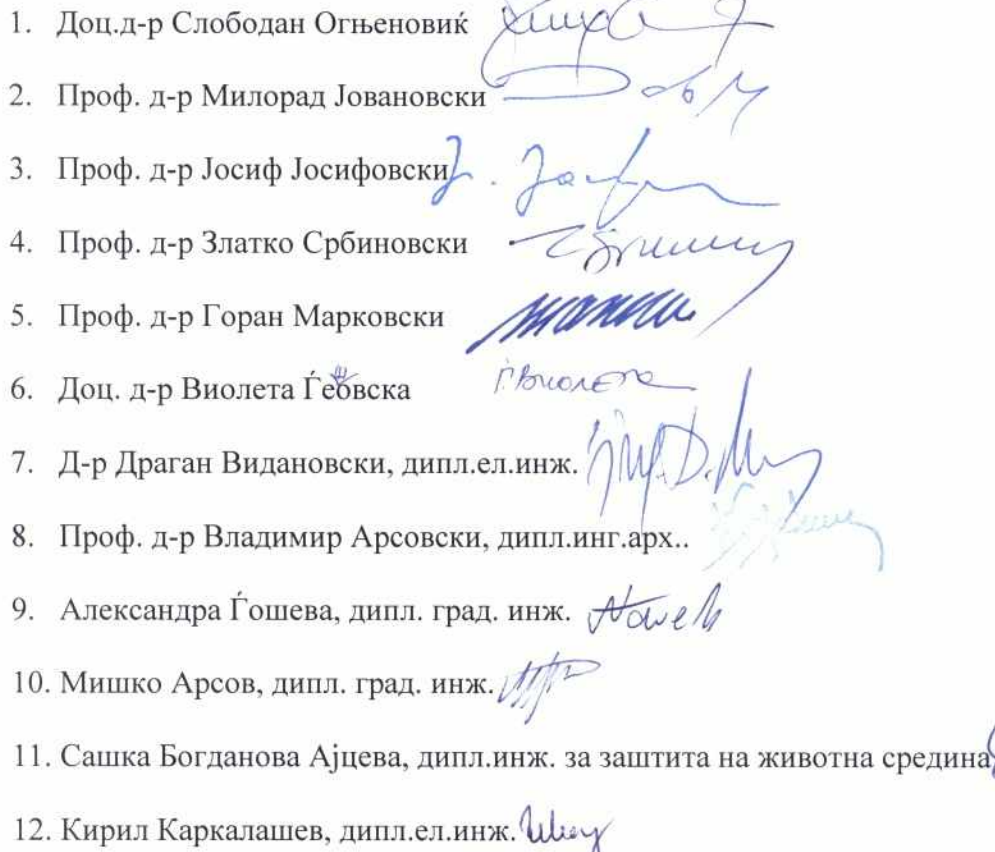 1. Доц.д-р Слободан Огњеновиќ
2. Проф. д-р Милорад Јовановски
3. Проф. д-р Јосиф Јосифовски
4. Проф. д-р Златко Србиновски
5. Проф. д-р Горан Марковски
6. Доц. д-р Виолета Ѓеовска Ѓ.Виолета
7. Д-р Драган Видановски, дипл.ел.инж.
8. Проф. д-р Владимир Арсовски, дипл.инг.арх..
9. Александра Ѓошева, дипл. град. инж.
10. Мишко Арсов, дипл. град. инж.
11. Сашка Богданова Ајцева, дипл.инж. за заштита на животна средина
12. Кирил Каркалашев, дипл.ел.инж.